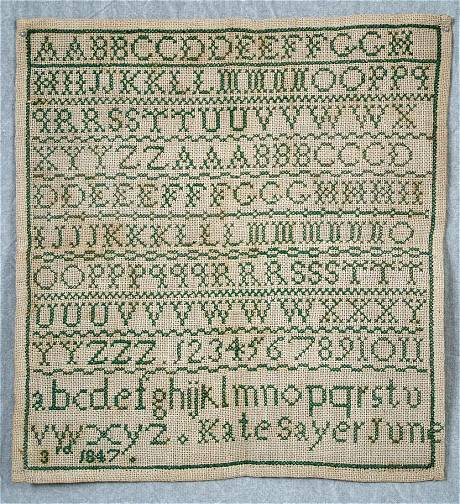 AABBCCDDEEFFGGH
HIIJJKKLLMMNNOOPPQ
QRRSSTTUUVVWWX
XYYZZAAABBBCCCD
DDEEEFFFGGGHHHII
IJJJKKKLLLMMMNNNO
OOPPPQQQRRRSSSTTT
UUUVVVWWWXXXY
YYZZZ. 1234567891011
abcdefghijklmnopqrstu
vwxyz. Kate Sayer June
3rd 1847.